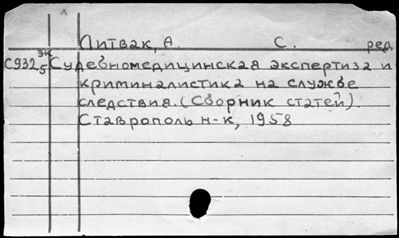 Литвак, А. С. ред
эк
С932 Судебномедицинская экспертиза и
5 криминалистика на службе
следствия. (Сборник статей).
Ставрополь н-к, 1958